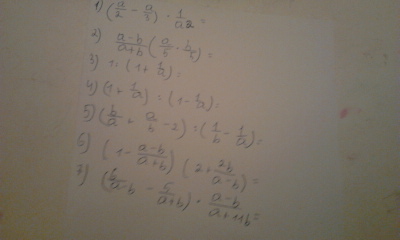 1) (a/2 - a/3) · 1/a2 =
2) a-b/a+b (a/b - b/5) =
3) 1 : (1 + 1/a) =
4) (1 + 1/a) : (1 - 1/a) =
5) (b/a + a/b - 2) : (1/b - 1/a) =
6) (1 - a-b/a+b) (2 + 2b/a-b) =
7) (6/a-b - 5/a+b) · a-b/a+11b =